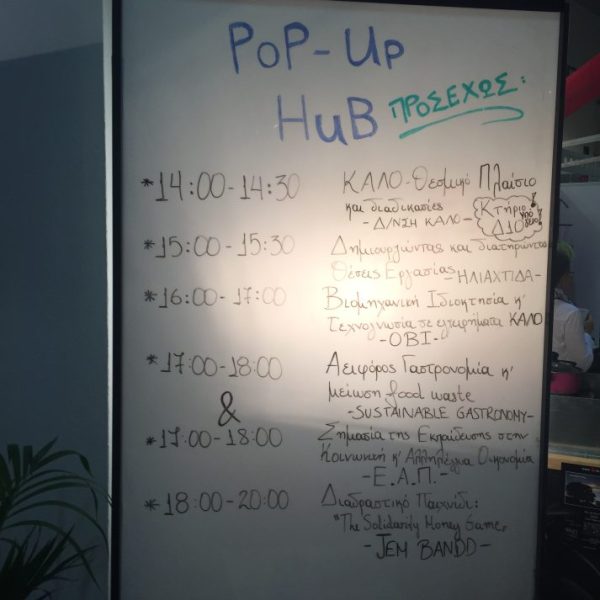 PoP-Up
HuB ΠΡΟΣΕΧΩΣ:
*14:00-14:30 ΚΑΛΟ-Θεσμικό Πλαίσιο
και διαδικασίες
-Δ/ΝΣΗ ΚΑΛΟ-
Κτήριο
Δ10
*15:00-15:30 Δημιουργώντας και διατηρώντας
Θέσεις Εργασίας -ΗΛΙΑΧΤΙΔΑ-
*16:00-17:00 Βιομηχανική Ιδιοκτησία η'
Τεχνογνωσία σε εγχειρήματα ΚΑΛΟ
-ΟΒΙ-
*17:00-18:00 Αειφόρος Γαστρονομία η'
μείωση food waste
-SUSTAINABLE GASTRONOMY-
&
*17:00-18:00 Σημασία της Εκπαίδευσης στην
Κοινωνική η' Αλληλέγγυα Οικονομία
-Ε.Α.Π.-
*18:00-20:00 Διαδραστικό Παιχνίδι:
"The Solidarity Money Game"
-JEM BANDD-